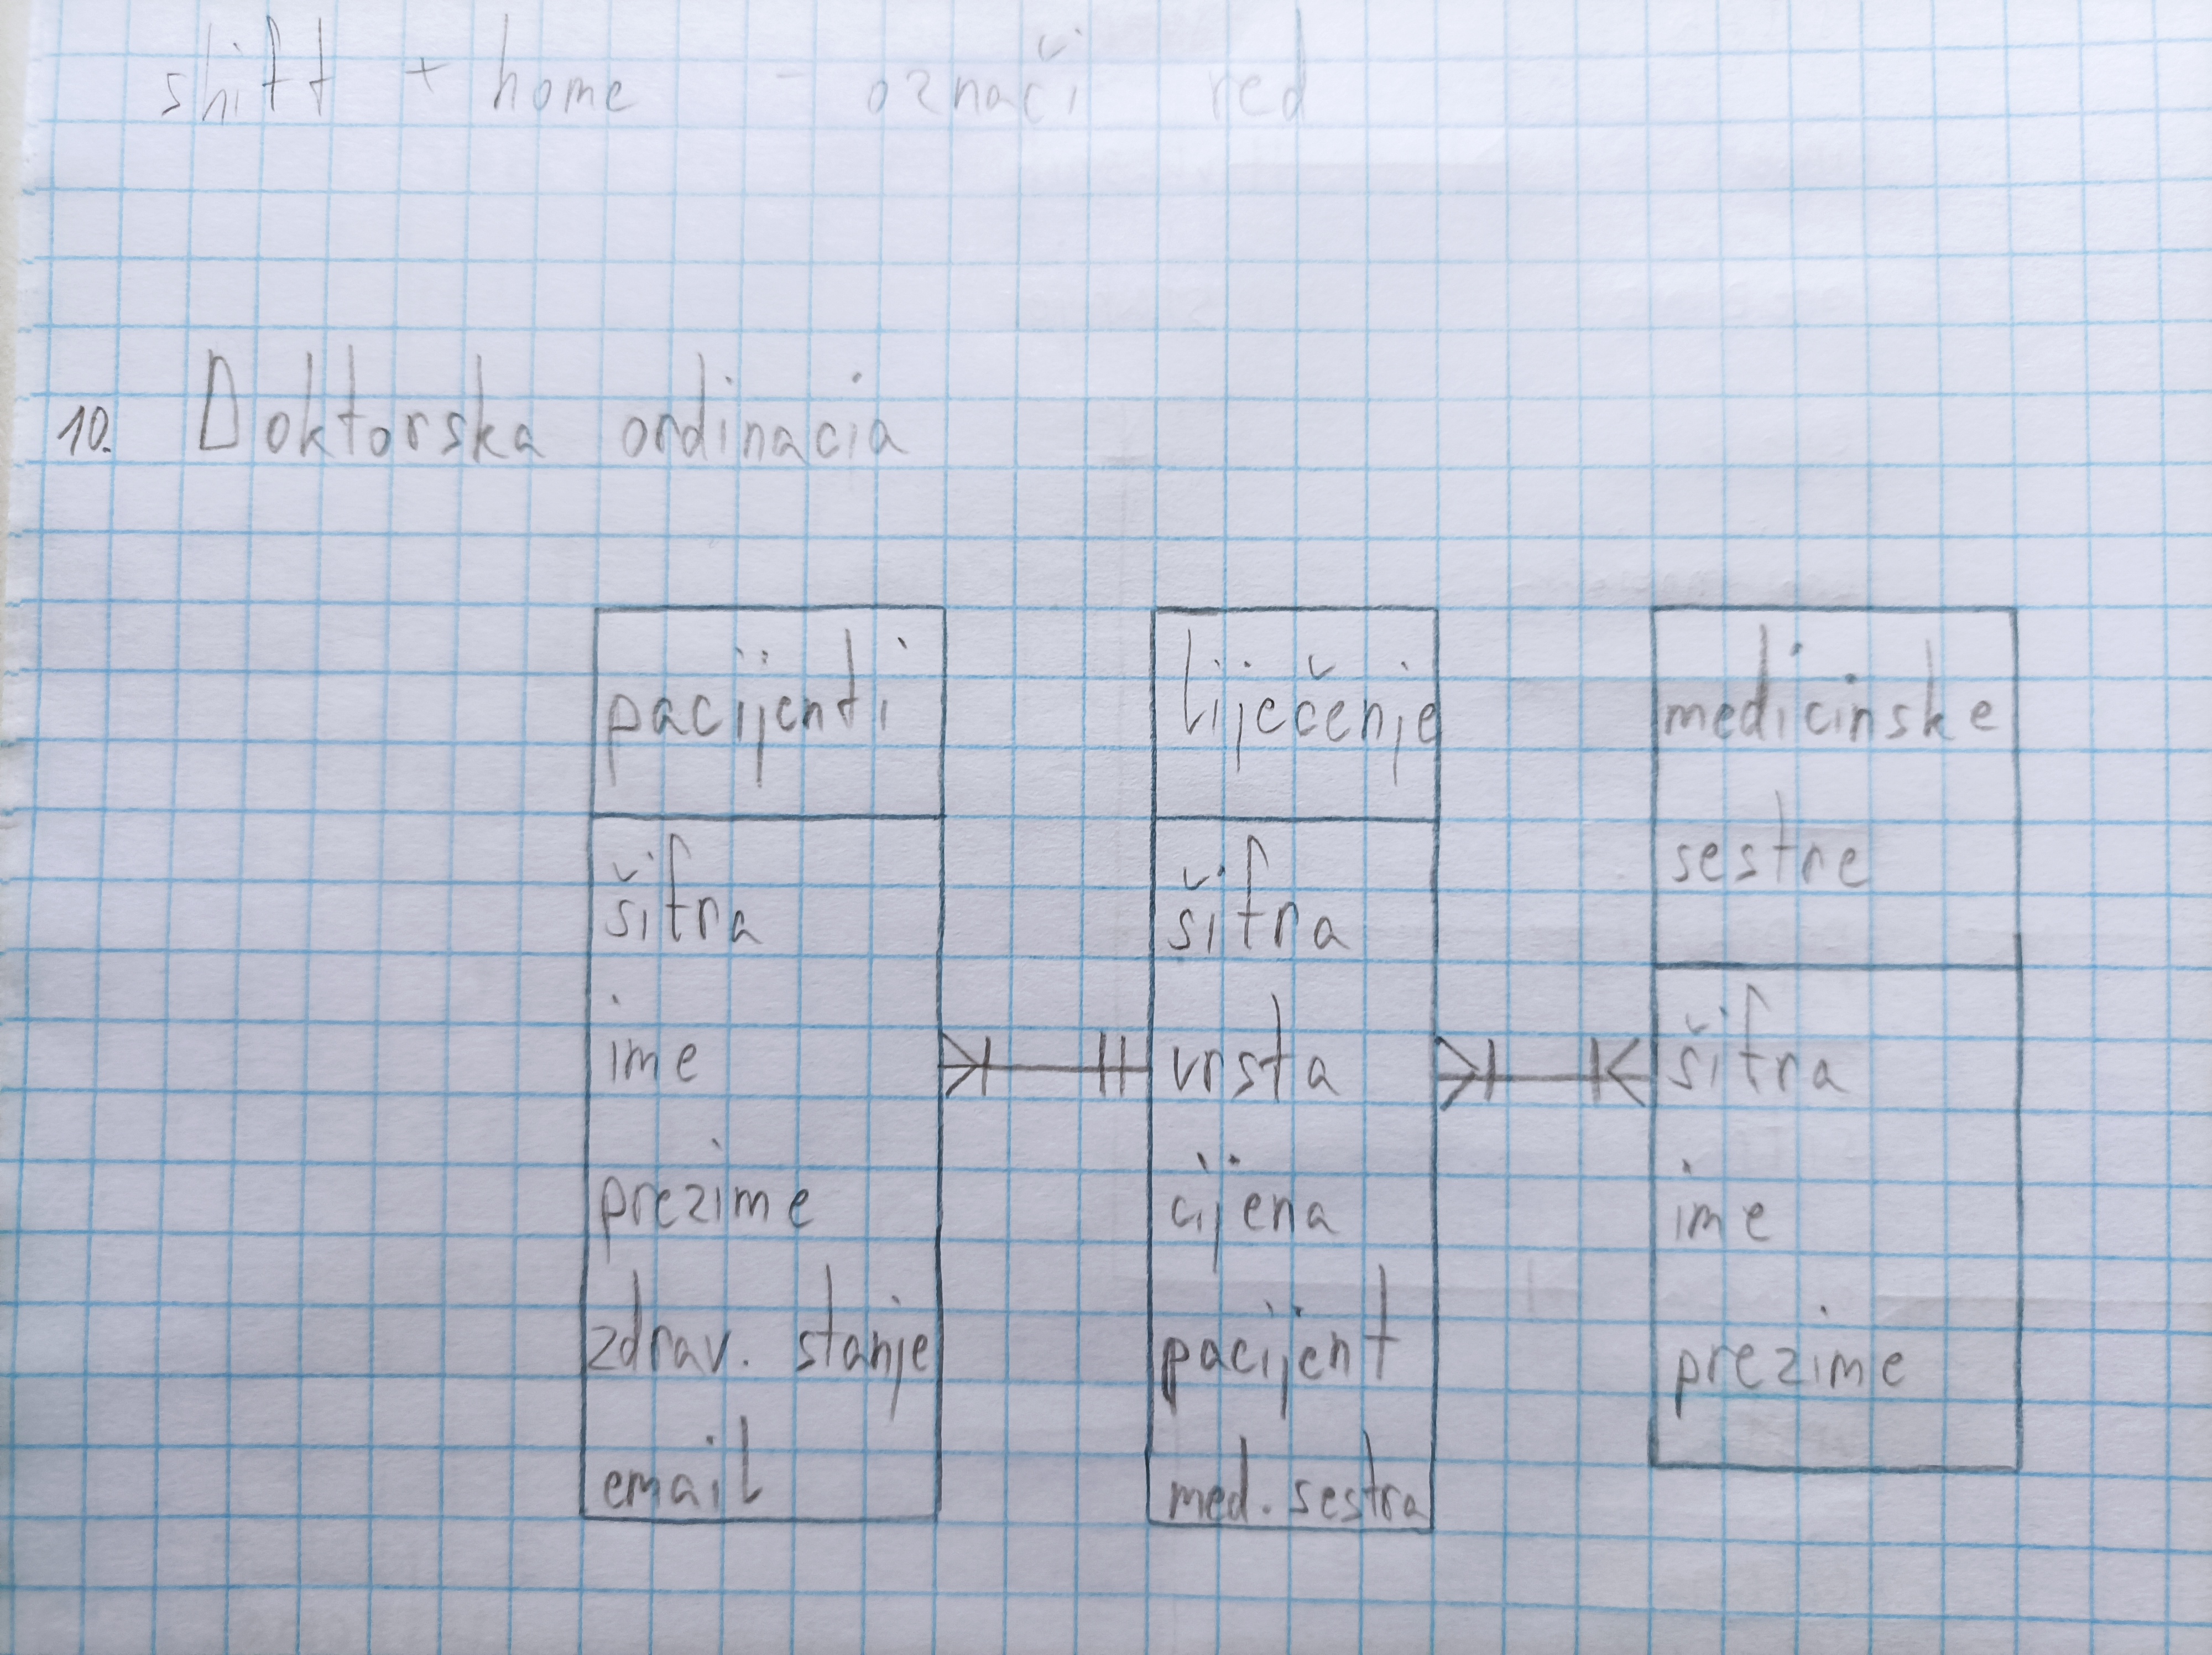 shift + home - označi red
10. Doktorska ordinacia
pacijenti
šifra
ime
prezime
zdrav. stanje
email
liječenje
šifra
vrsta
cijena
pacijent
med. sestra
medicinske
sestre
šifra
ime
prezime